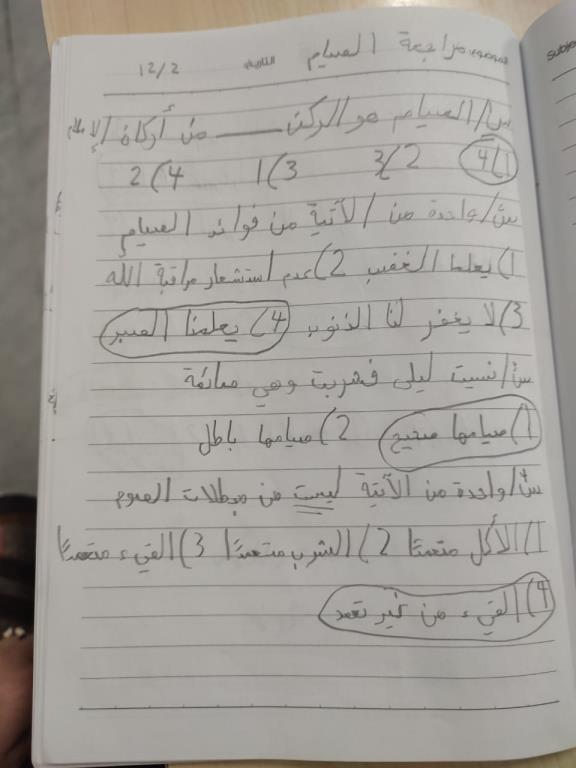 الموضوع مراجعة الصيام التاريخ 12/2
س1/الصيام هو الركن ــــــ من أركان الإسلام
1)4 2)3 3)1 4)2
س2/واحدة من الآتية من فوائد الصيام
1)يعلمنا الغضب 2)عدم استشعار مراقبة الله
3)لا يغفر لنا الذنوب 4)يعلمنا الصبر
س3/نسيت ليلى فشربت وهي صائمة
1)صيامها صحيح 2)صيامها باطل
س4/واحدة من الآتية ليست من مبطلات الصوم
1)الأكل متعمدًا 2)الشرب متعمدًا 3)القيء متعمدًا
4)القيء من غير تعمد
subje